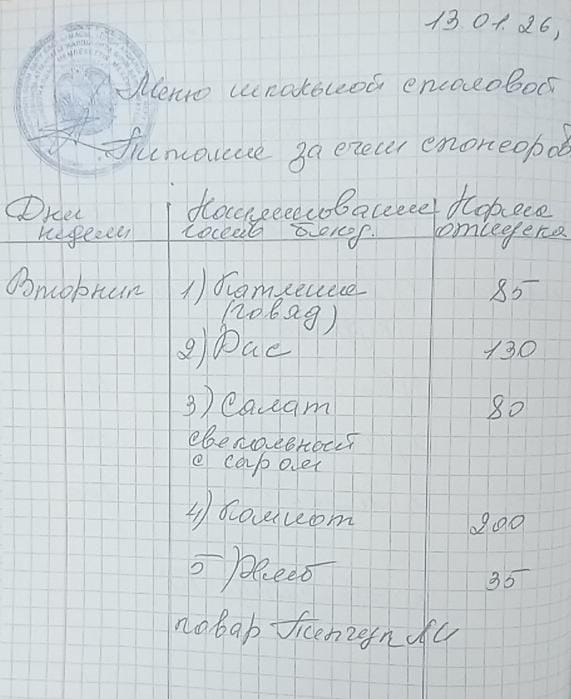 13.01.26,
Меню школьной столовой
Питание за счет спонсоров
Дни Наименование Норма
недели состав блюд.
Вторник 1) Катлеше 85
(говяд)
2) Рис 130
3) Салат 80
свекольный
с сыром
4) Компот 200
5) Хлеб 35
повар